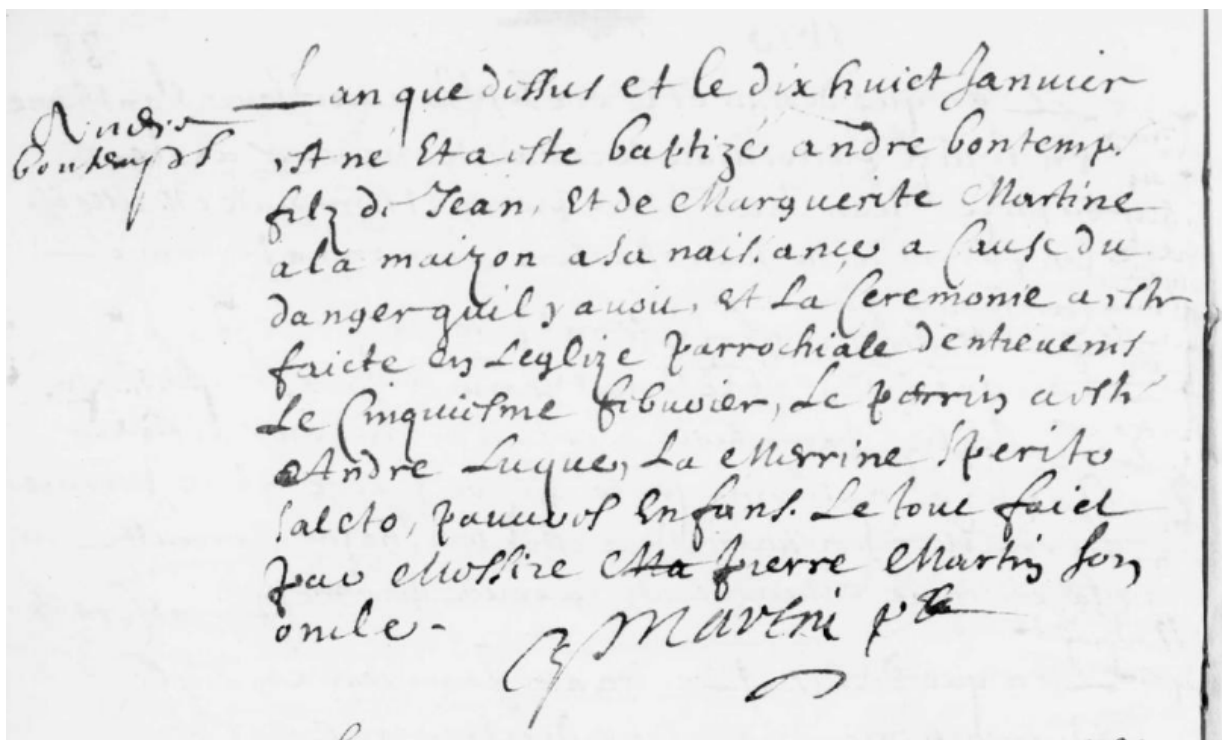 Lan que dessus et le dix huict Janvier
Andre
bontemps
est ne Et a este baptizé andre bontemp.
filz de Jean, Et de Marguerite Martine
a la maizon a sa naissance a Cause du
danger quil y avoit, et La Ceremonie a este
faicte en Leglize parrochiale dentrevenes
Le Cinquiesme febvrier, Le perrin a este
Andre Luque, La Merrine Sperite
pauvres Enfans. Le tout faict
par Messire pierre Martin son
oncle.
Martin ptre